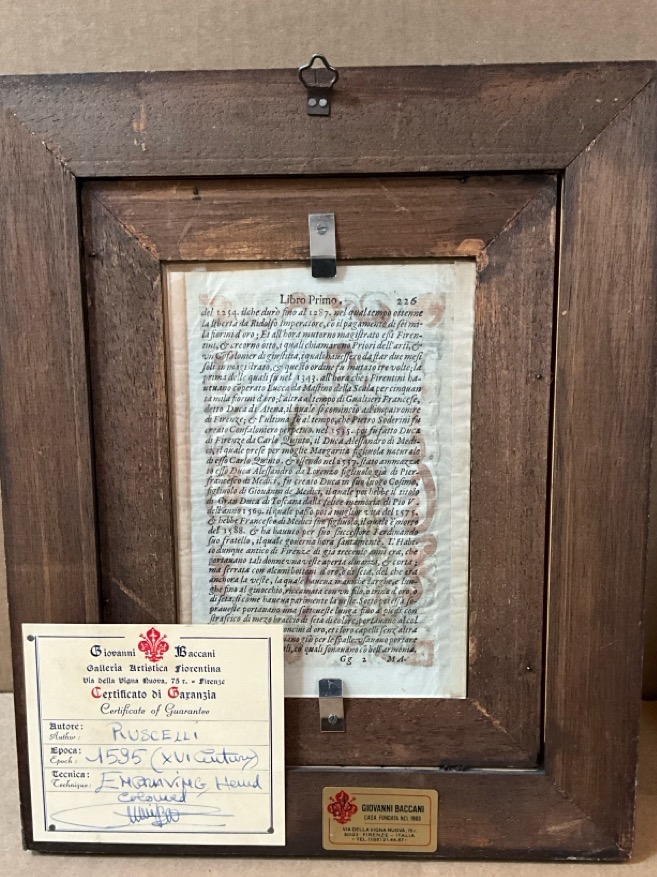 Libro Primo. 226
del 1254. ilche durò fino al 1287. nel qual tempo ottenne
la libertà da Ridolfo Imperatore, co il pagamento di sei mi-
la fiorini d'oro; Et all'hora mutaron magistrato essi Firen-
tini, & crearono otto, i quali chiamarono Priori dell'arti, &
vn Cōfalonier di giustitia, i quali hauessero da star due mesi
soli in magistrato, & questo ordine fu mutato tre volte; la
prima delle quali fu nel 1343. all'hora che i Firentini ha-
ueuano cōperato Lucca da Mastino della Scala per cinquan
ta mila fiorini d'oro; l'altra al tempo di Gualtieri Francese,
detto Duca di Atena, il quale se comincio ad impatronire
di Firenze; & l'ultima fu al tempo, che Pietro Soderini fu
creato Confaloniero perpetuo. nel 1535. poi fu fatto Duca
di Firenze da Carlo Quinto, il Duca Alessandro di Medi-
ci, il quale prese per moglie Margarita figliuola naturale
di esso Carlo Quinto, & essendo nel 1537. stato ammazza
to esso Duca Alessandro da Lorenzo figliuolo già di Pier-
francesco di Medici, fu creato Duca in suo luogo Cosimo
figliuolo di Giouanni de Medici, il quale poi hebbe il titolo
di Gran Duca di Toscana dalla felice memoria di Pio V.
dell'anno 1569. il quale passò poi à miglior vita del 1575.
& hebbe Francesco di Medici suo figliuolo, il quale è morto
del 1588. & ha hauuto per suo successore Ferdinando
suo fratello, il quale gouerna hora santamente. L'Habi-
to dunque antico di Firenze di già trecento anni era, che
portauano tali donne vna veste aperta dinanzi, & corta;
ma serrata con alcuni bottoni d'oro, ò di seta. del che era
anchora la veste, la quale haueua maniche larghe, & lun-
ghe fino al ginocchio, riccamata con vn filo, o trina d'oro o
di seta. sì come haueua parimente la veste. Sotto poi essa so-
praueste portauano vna sottueste lunga fino a piedi con
strascico di mezo braccio di seta di colore, portauano al col
oncini d'oro, et i loro capelli senz'altra
gio per le spalle, vsauano portare
li, co' quali sonauano cō bell'armonia.
Gg 2 MA-
Giovanni Baccani
Galleria Artistica Fiorentina
Via della Vigna Nuova, 75 r. - Firenze
Certificato di Garanzia
Certificate of Guarantee
Autore:
Author: RUSCELLI
Epoca:
Epoch: 1595 (XVI Century)
Tecnica:
Technique: ENGRAVING Hand
coloured
GIOVANNI BACCANI
CASA FONDATA NEL 1903
VIA DELLA VIGNA NUOVA, 75 r.
50123 FIRENZE - ITALIA